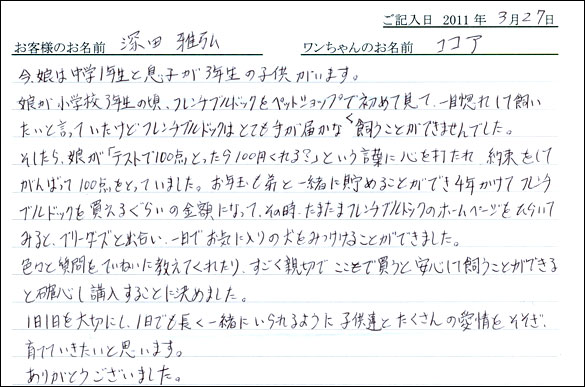 ご記入日 2011年 3月27日
お客様のお名前 深田 雅弘 ワンちゃんのお名前 ココア
今、娘は中学1年生と息子が3年生の子供がいます。
娘が小学校3年生の頃、フレンチブルドックをペットショップで初めて見て、一目惚れして飼い
たいと言っていたけどフレンチブルドックはとても手が届かなく飼うことができませんでした。
そしたら、娘が「テストで100点とったら100円くれる?」という言葉に心を打たれ、約束をして
がんばって100点をとっていました。お年玉も弟と一緒に貯めることができ4年かけてフレンチ
ブルドックを買えるぐらいの金額になって、その時、たまたまフレンチブルドックのホームページをひらいて
みると、ブリーダーズと出会い、一目でお気に入りの犬をみつけることができました。
色々と質問をていねいに教えてくれたり、すごく親切でここで買うと安心して飼うことができる
と確心し講入することに決めました。
1日1日を大切にし、1日でも長く一緒にいられるように子供達とたくさんの愛情をそそぎ、
育てていきたいと思います。
ありがとうございました。